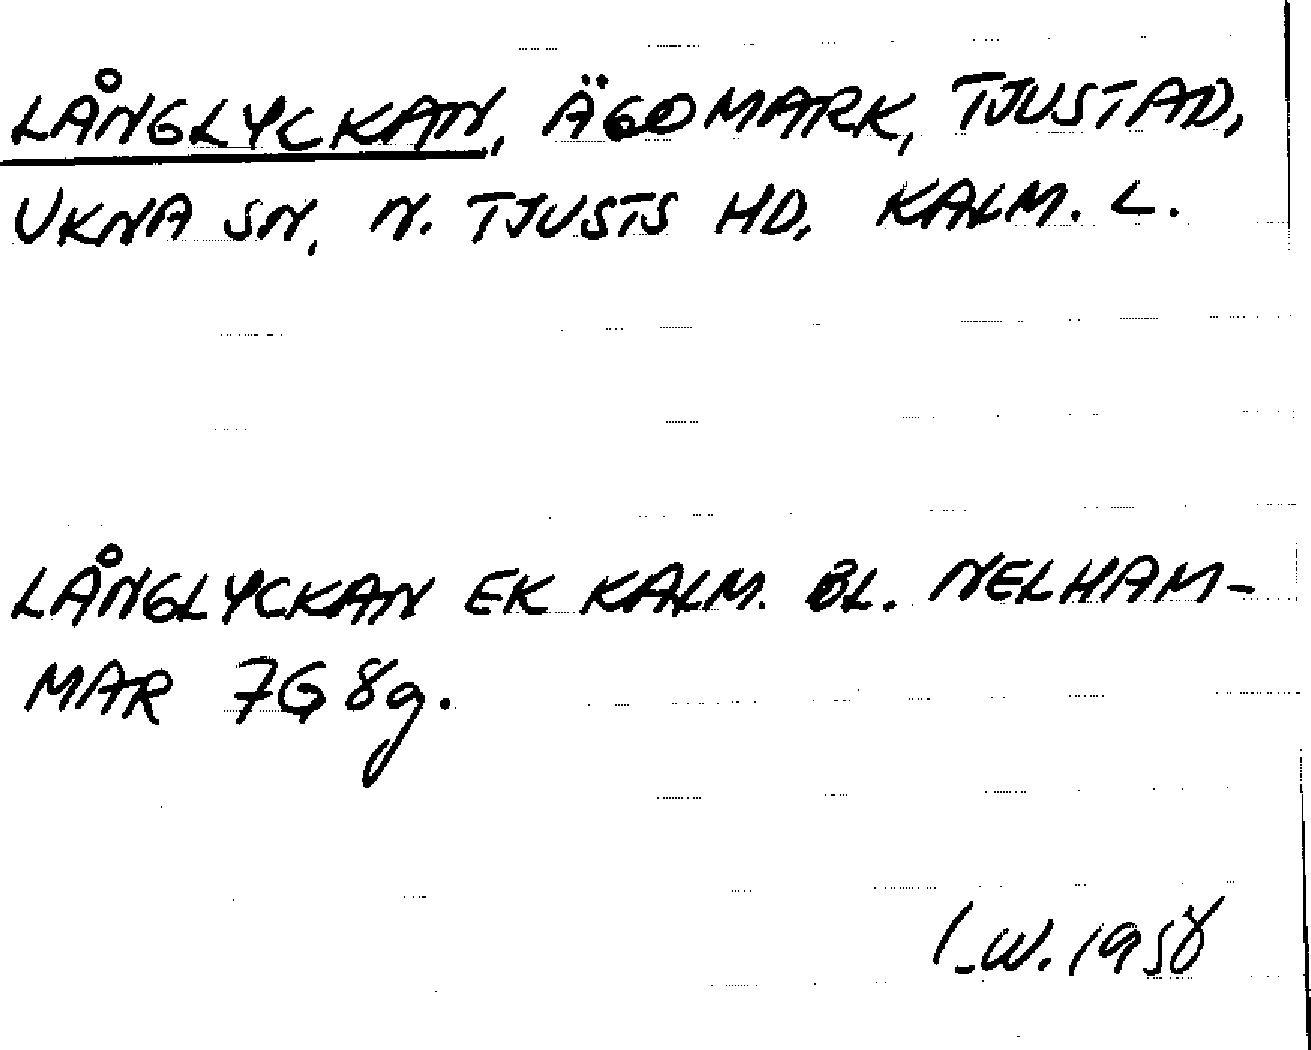 LÅNGLYCKAN, ÄGOMARK, TJUSTAD,
UKNA SN, N. TJUSTS HD, KALM. L.
LÅNGLYCKAN EK KALM. BL. NELHAM-
MAR 7G 8g.
I.W. 1958